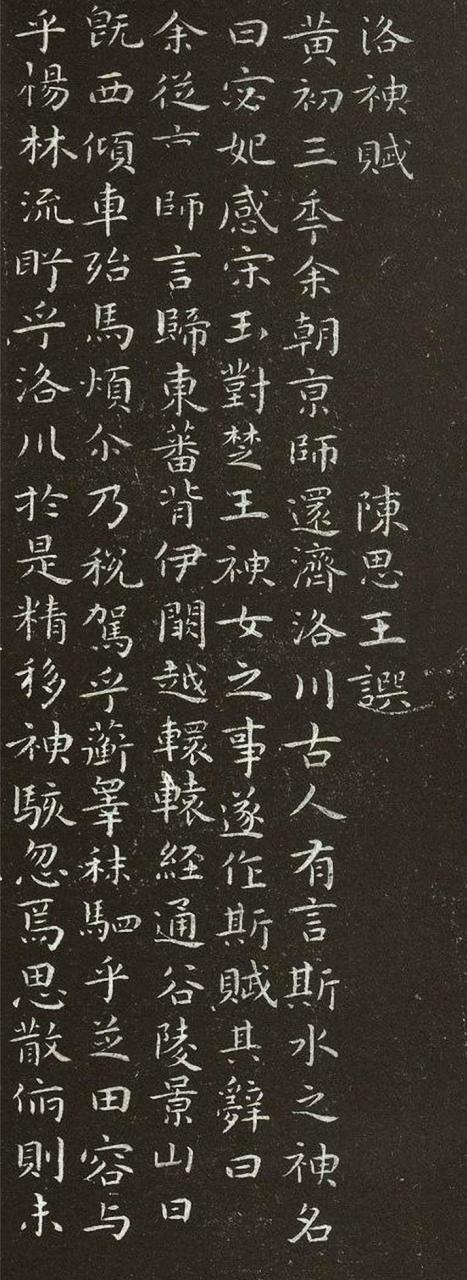 洛神賦 陳思王譔
黃初三秊余朝京師還濟洛川古人有言斯水之神名
曰宓妃感宋玉對楚王神女之事遂作斯賦其辭曰
余從京師言歸東蕃背伊闕越轘轅経通谷陵景山日
既西傾車殆馬煩尒乃税駕乎蘅皋秣駟乎芝田容与
乎楊林流眄乎洛川於是精移神駭忽焉思散俯則未